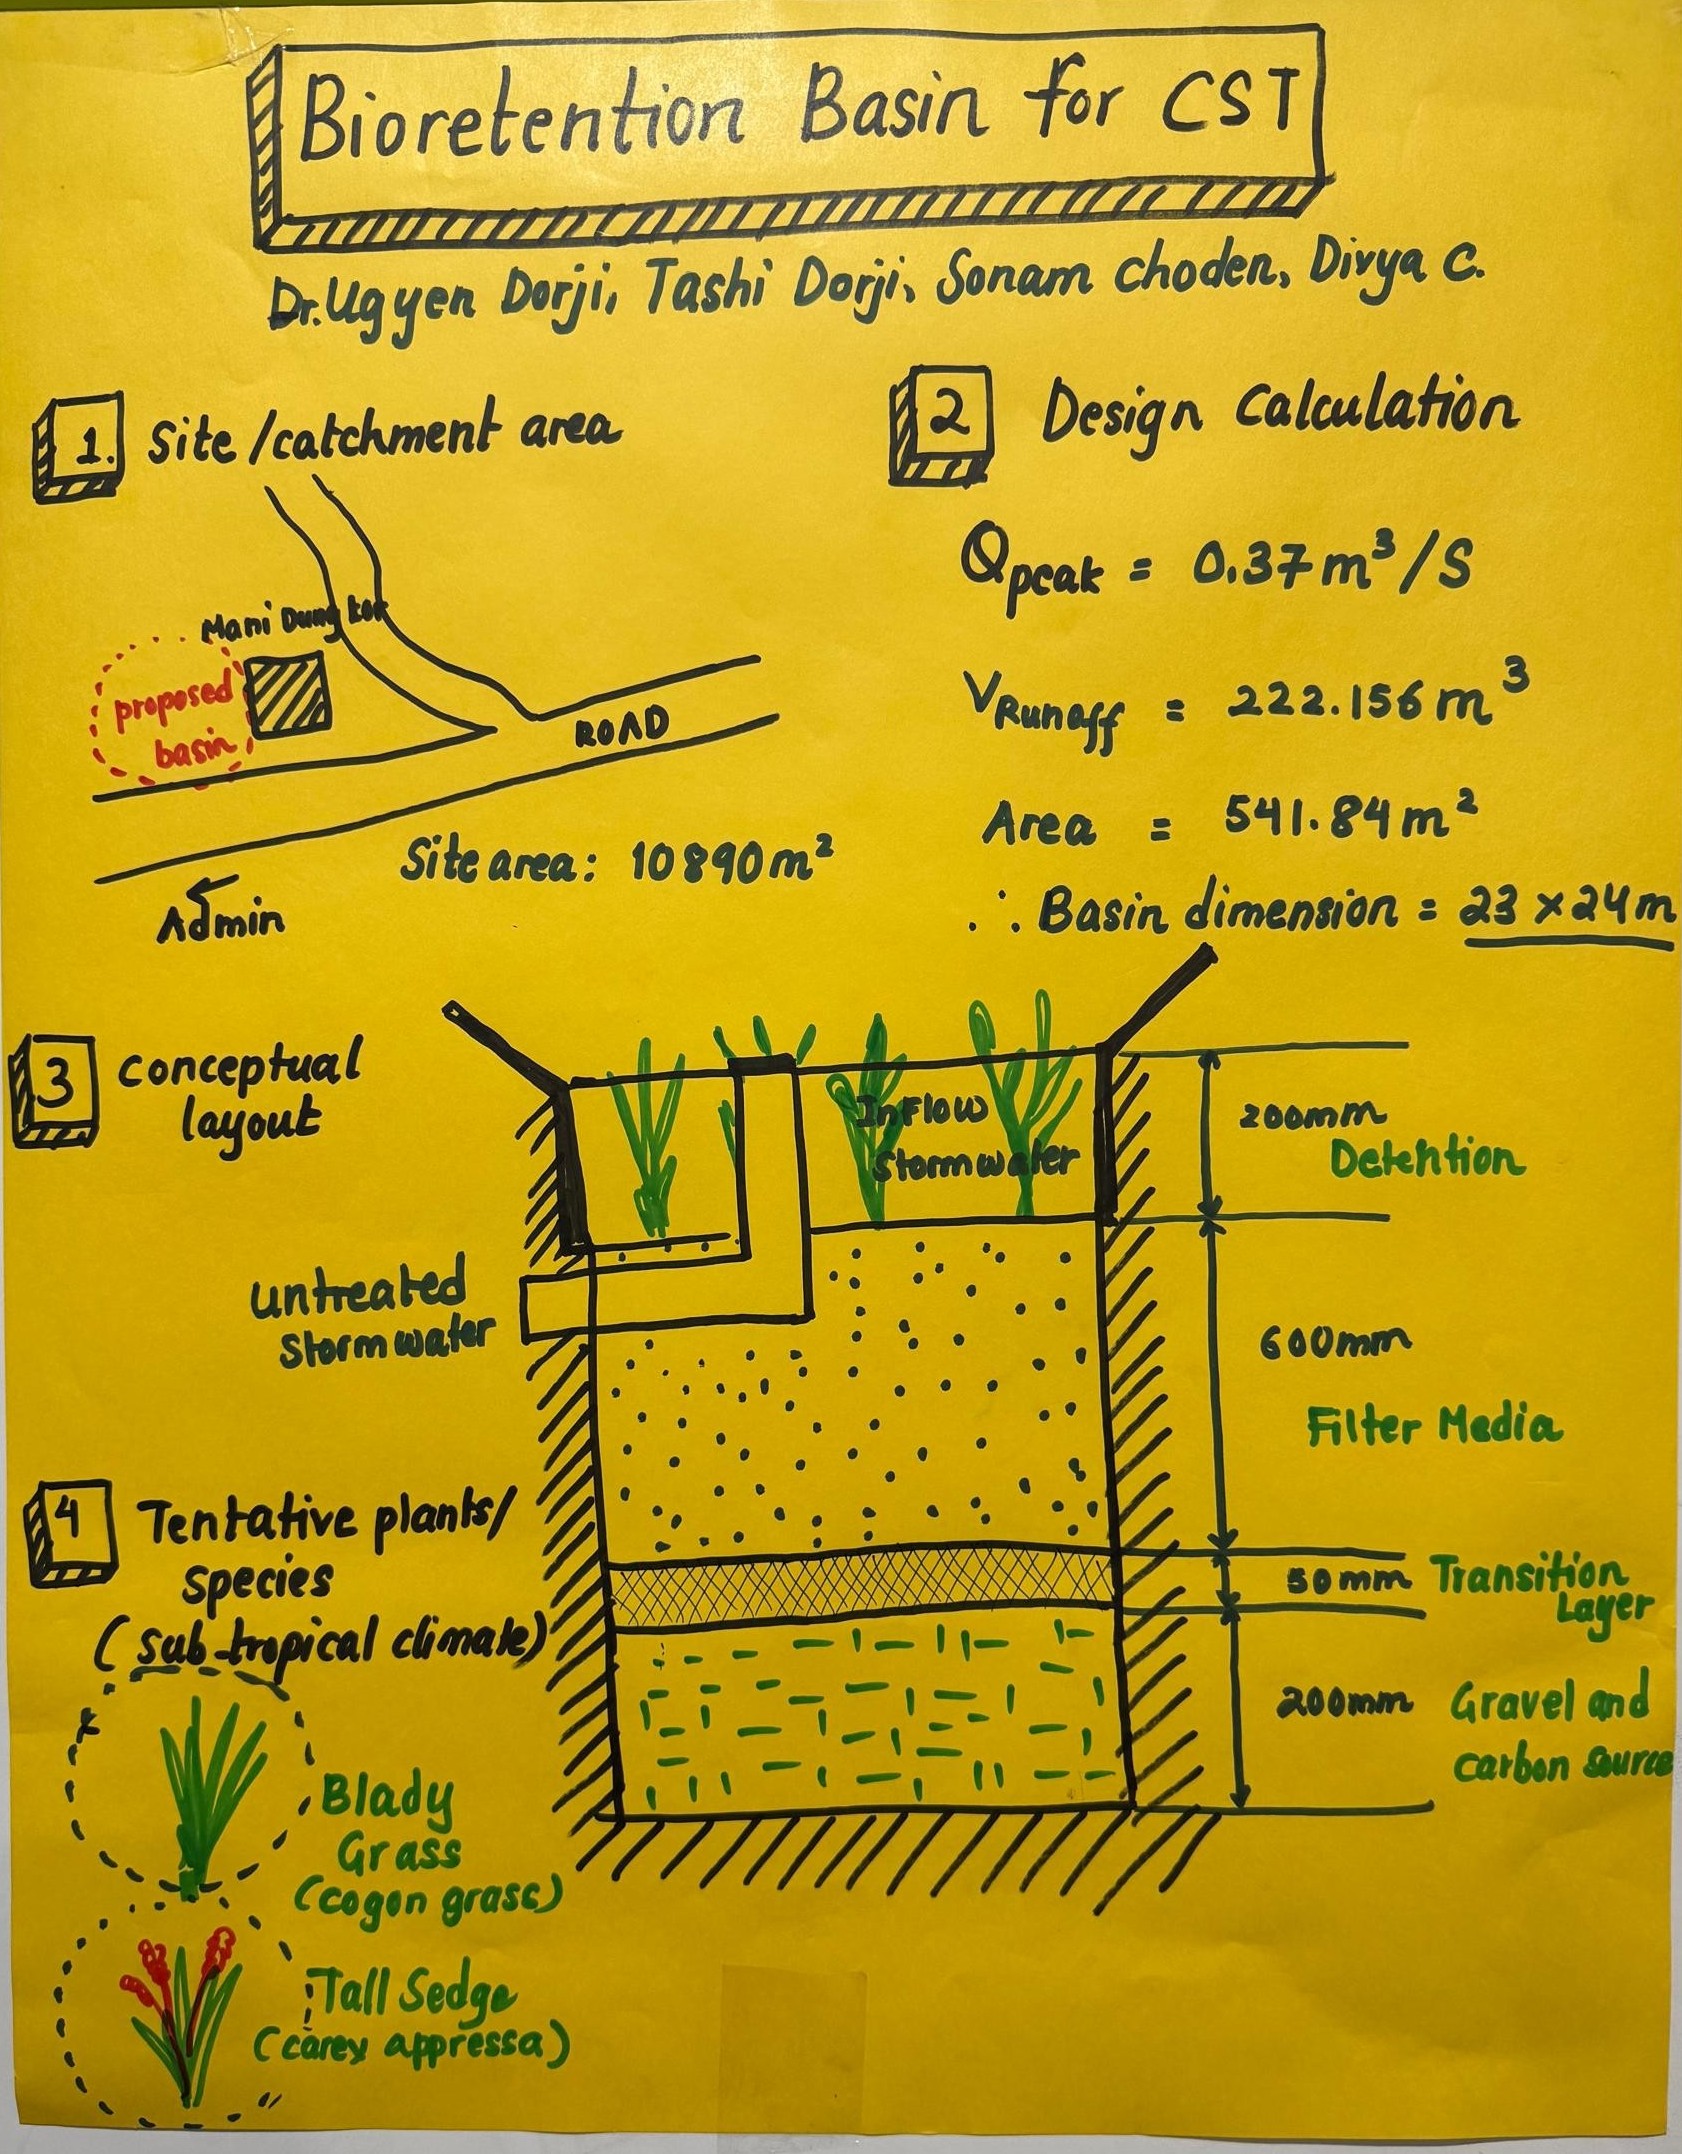 Bioretention Basin for CST
Dr. Ugyen Dorji, Tashi Dorji, Sonam choden, Divya C.
1. Site/catchment area
Mani Dungkor
proposed
basin
ROAD
Site area: 10890m²
Admin
2 Design Calculation
Qpeak = 0.37m³/S
VRunoff = 222.156m³
Area = 541.84m²
∴ Basin dimension = 23 x 24m
3 conceptual
layout
InFlow
Stormwater
200mm
Detention
untreated
Stormwater
600mm
Filter Media
50mm Transition
Layer
200mm Gravel and
carbon source
4 Tentative plants/
species
(sub-tropical climate)
Blady
Grass
(cogon grass)
Tall Sedge
(carex appressa)